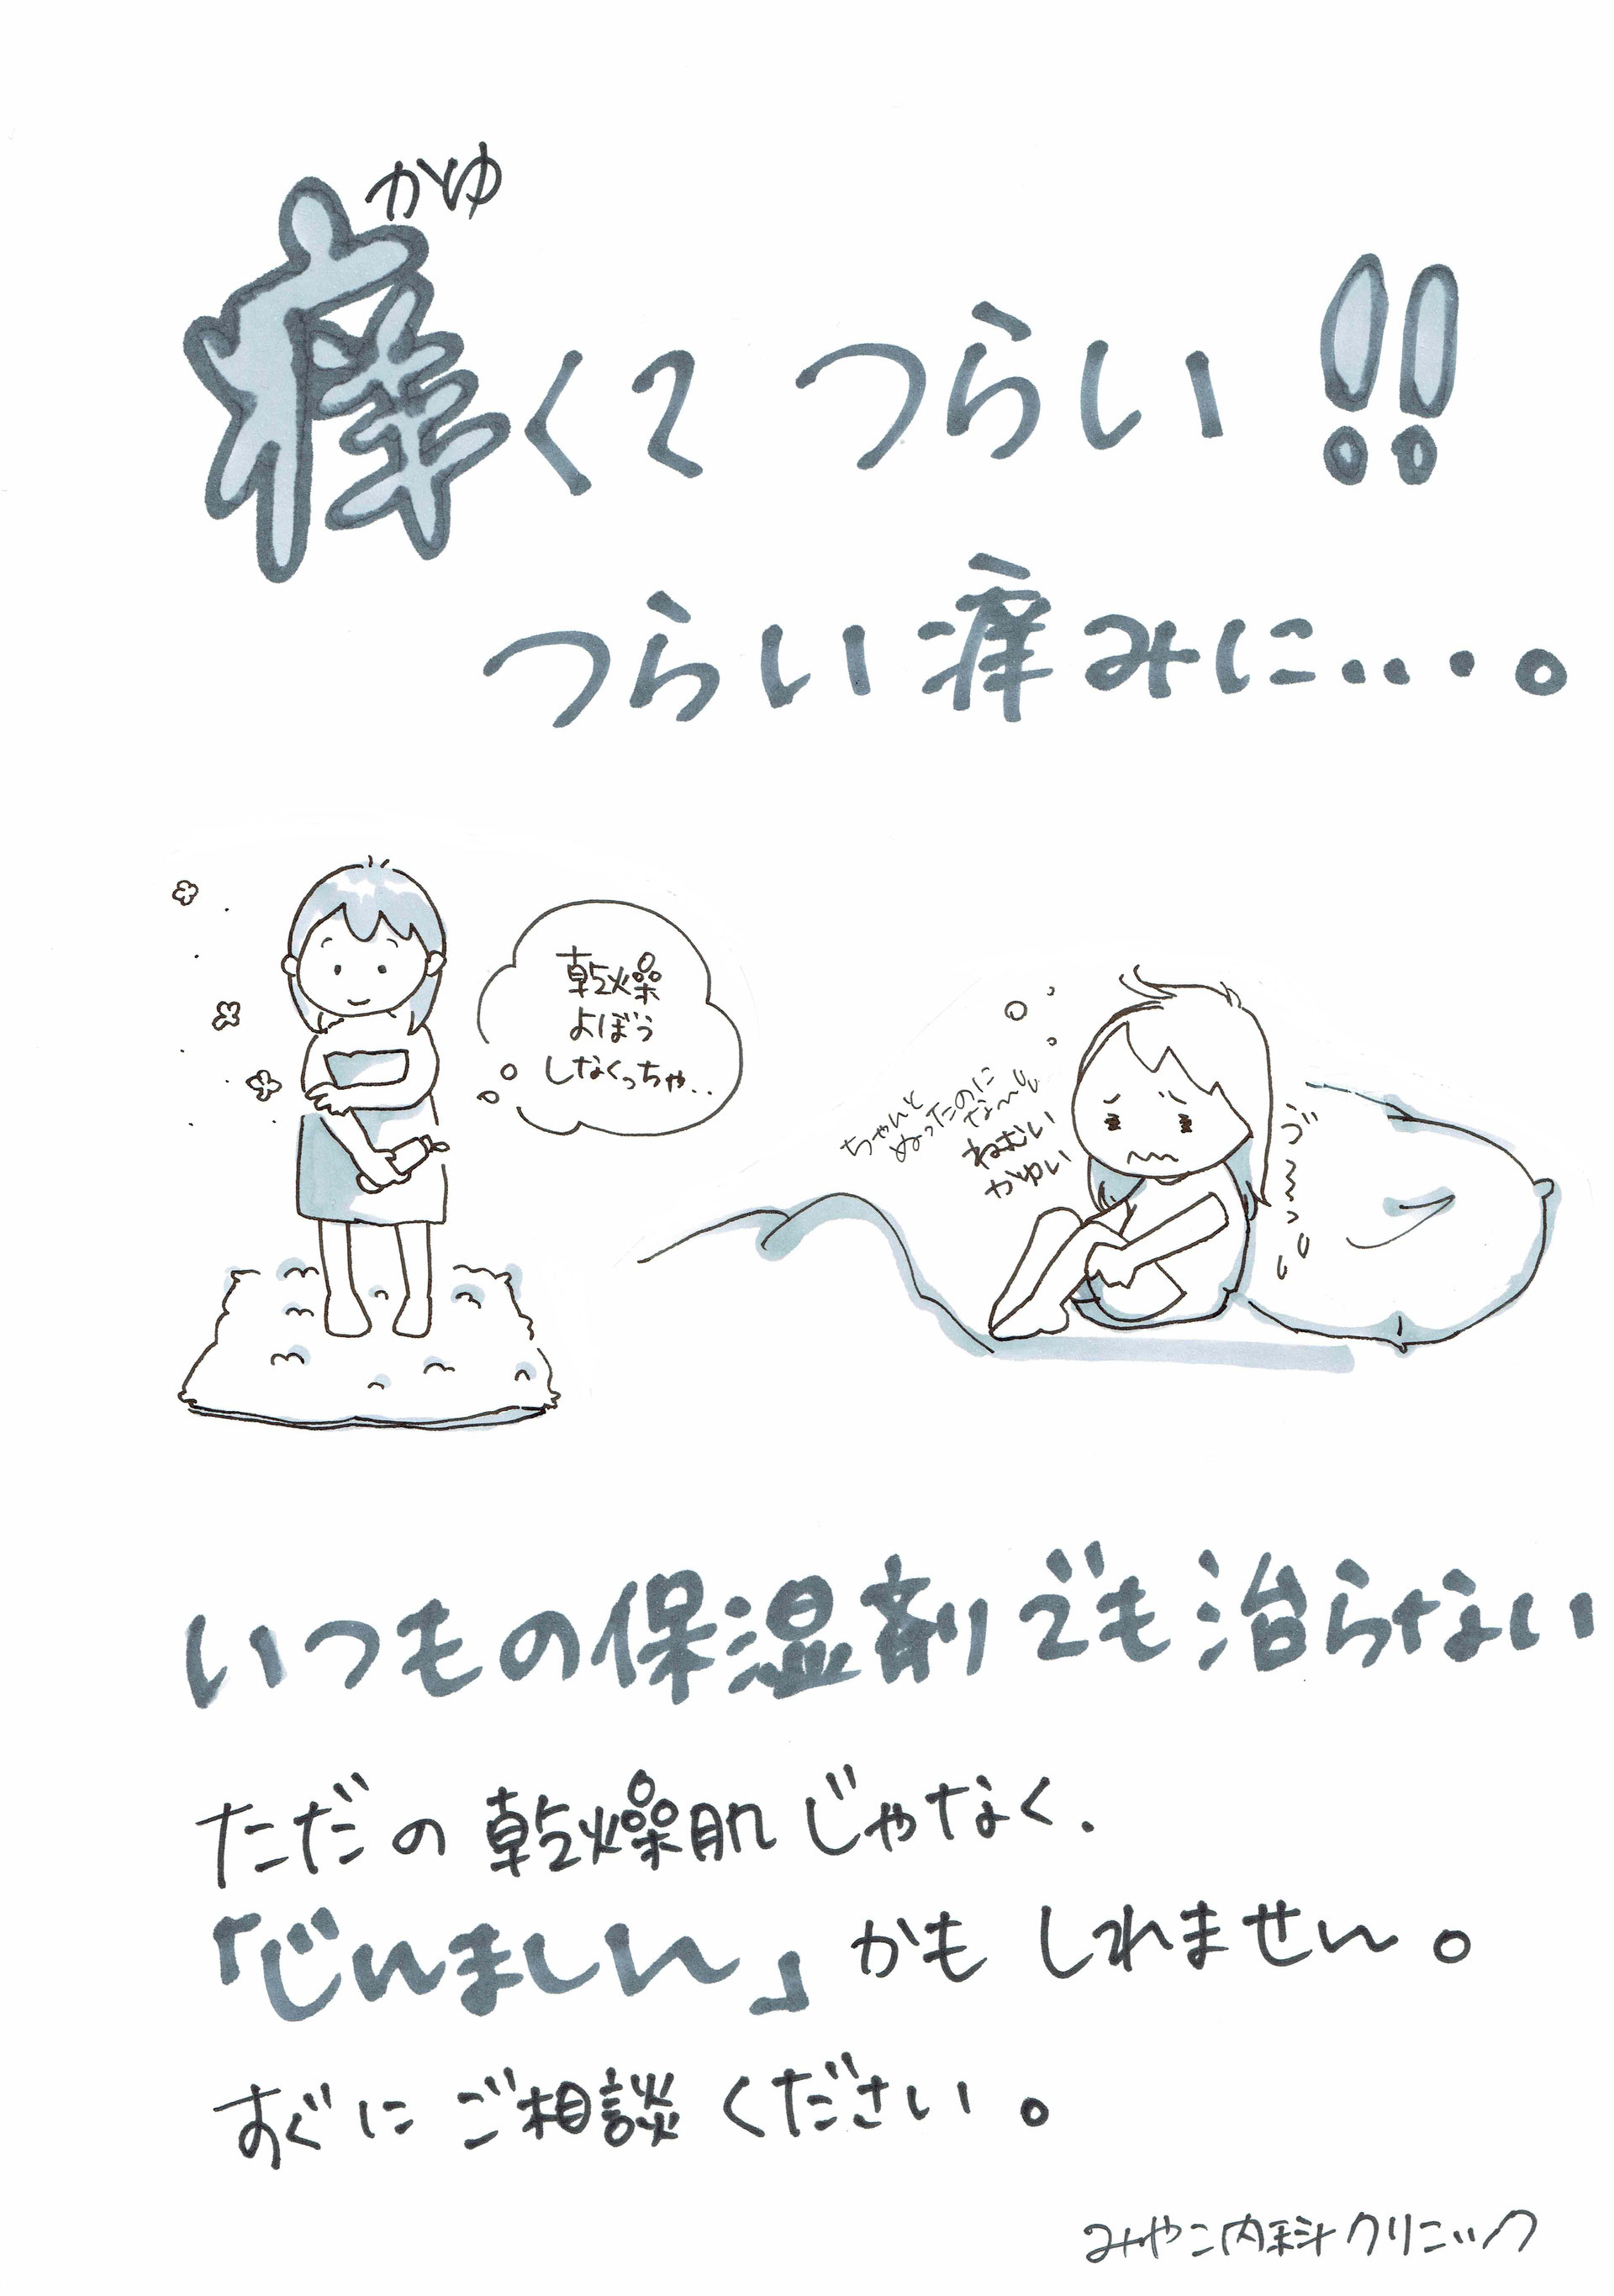 かゆ
痒くてつらい!!
つらい痒みに・・・。
乾燥
よぼう
しなくっちゃ..
ちゃんと
ぬったのに
な〜
ねむい
かゆい
いつもの保湿剤でも治らない
ただの乾燥肌じゃなく.
「じんましん」かもしれません。
すぐにご相談ください。
みやこ内科クリニック